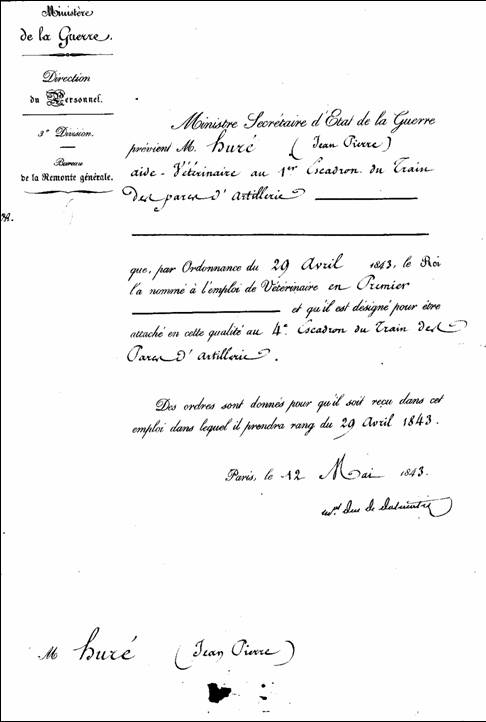 Ministère
de la Guerre.
Direction
du Personnel.
3e Division.
Bureau
de la Remonte générale.
Ministre Secrétaire d'Etat de la Guerre
prévient M. huré (Jean Pierre)
aide-Vétérinaire au 1er Escadron du Train
des parcs d'Artillerie
que, par Ordonnance du 29 Avril 1843, le Roi
l'a nommé à l'emploi de Vétérinaire en Premier
et qu'il est désigné pour être
attaché en cette qualité au 4e Escadron du Train des
Parcs d'Artillerie.
Des ordres sont donnés pour qu'il soit reçu dans cet
emploi dans lequel il prendra rang du 29 Avril 1843.
Paris, le 12 Mai 1843.
Duc de Dalmatie
M huré (Jean Pierre)